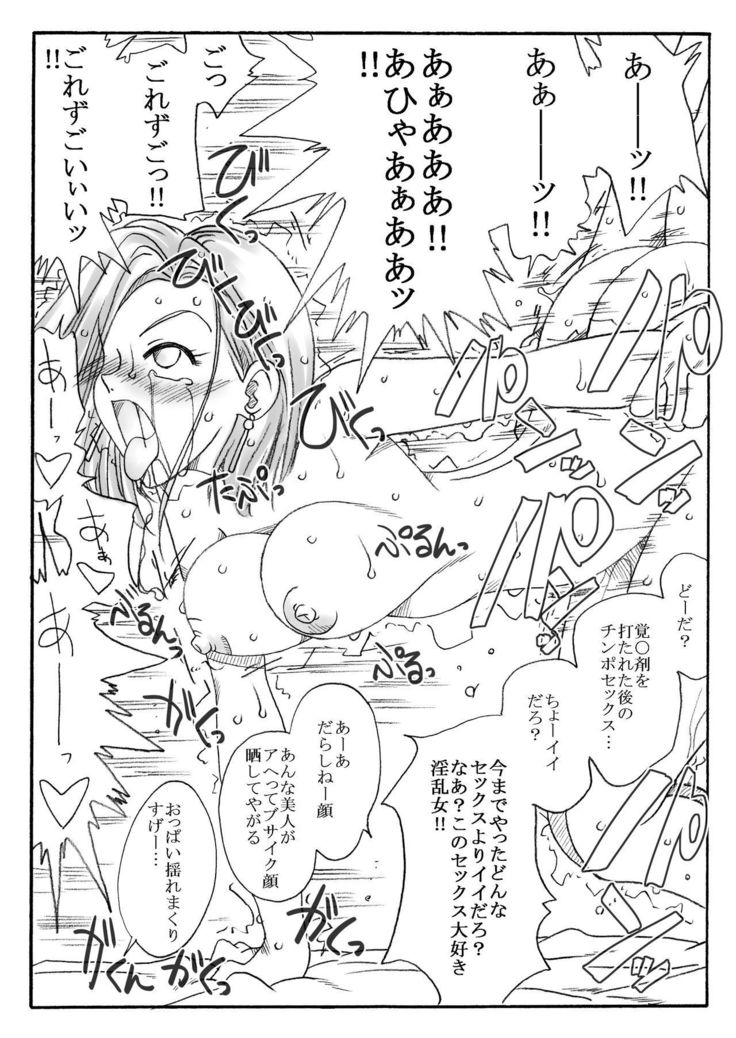 あーーッ!!
あぁーーッ!!
あぁあああ!!
あひゃあぁああッ
!!
ごっ
ごれずごっ!!
ごれずごいぃいッ
!!
びくっ
びくびくっ
びくっ
パンッ
パンッ
パンッ
たぷっ
ぷるんっ
ぶるんっ
ぷるっ
あーーっ
あぁ
あーーっ
どーだ?
覚〇剤を
打たれた後の
チンポセックス…
ちょーイイ
だろ?
今までやったどんな
セックスよりイイだろ?
なあ?このセックス大好き
淫乱女!!
あーあ
だらしねー顔
あんな美人が
アヘってブサイク顔
晒してやがる
おっぱい揺れまくり
すげー…
がくっ
がくっ
がくっ
がくん
パンッ